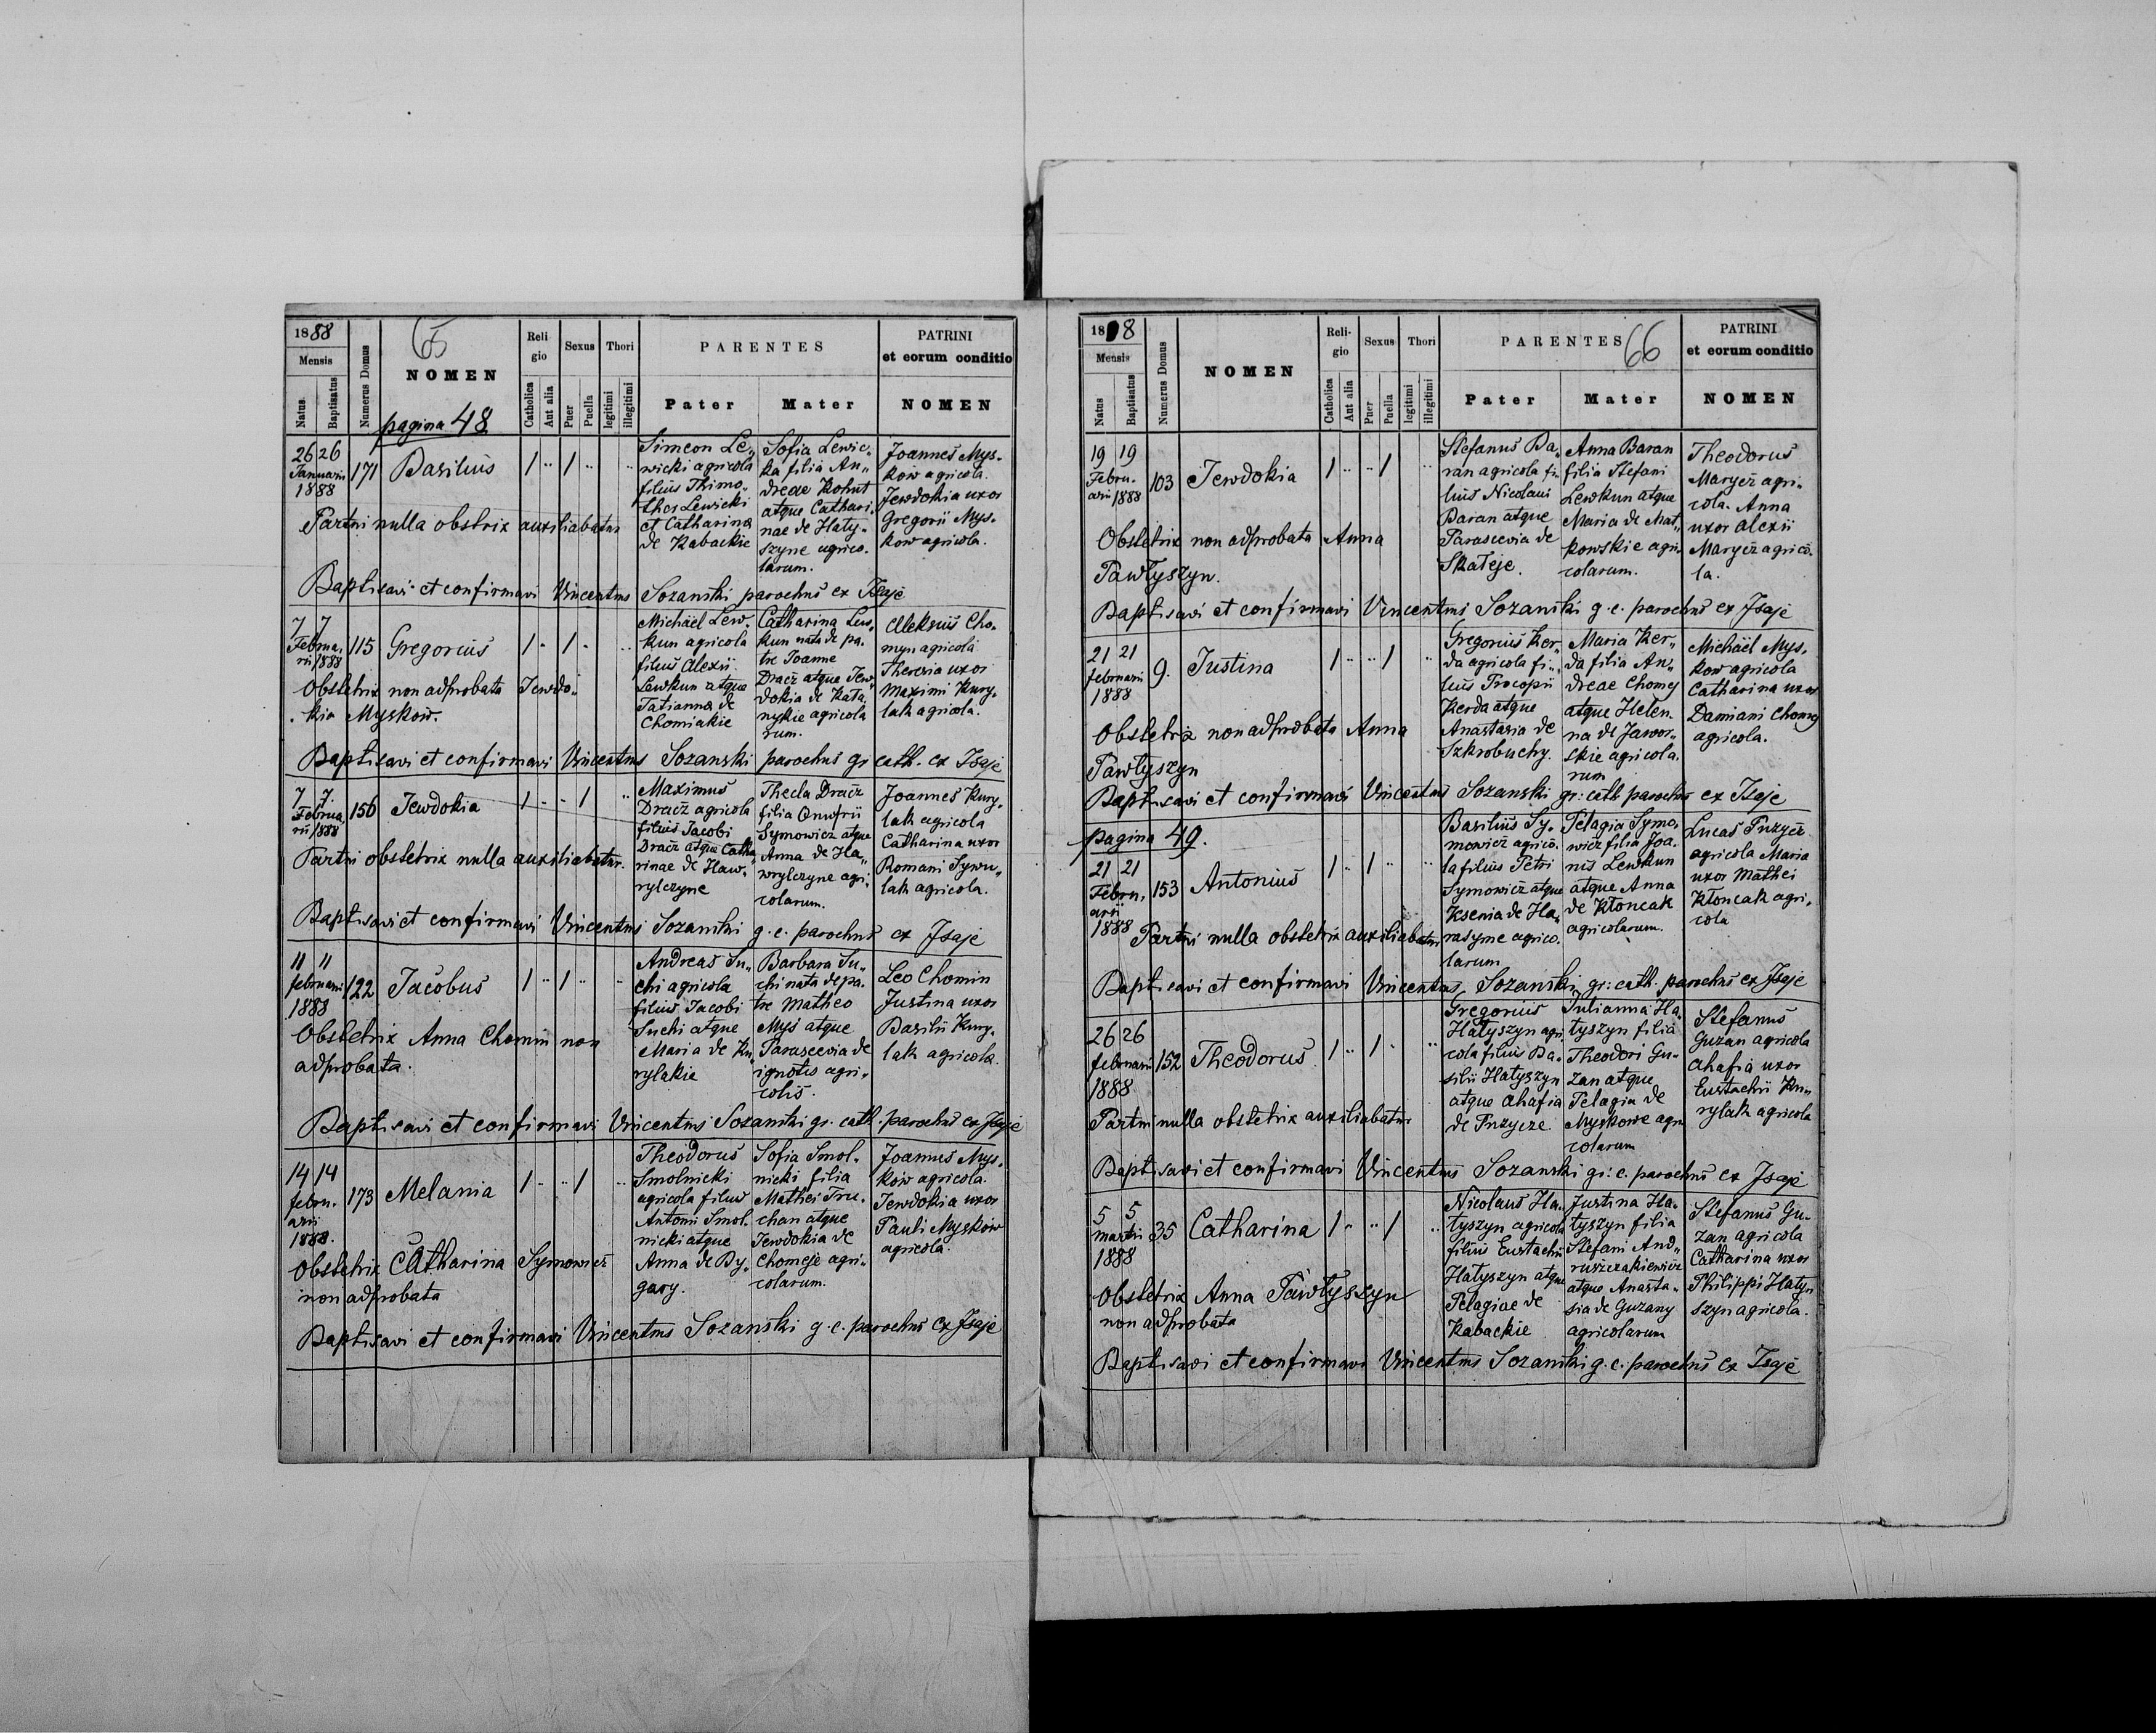 1888
65
Mensis
Natus
Baptisatus
Numerus Domus
NOMEN
pagina 48
Reli
gio
Catholica
Aut alia
Sexus
Puer
Puella
Thori
legitimi
illegitimi
PARENTES
Pater
Mater
PATRINI
et eorum conditio
NOMEN
26 26
Januarii
1888
171
Basilius
1 .. 1 .. ..
Simeon Le„
wicki agricola
filius Thimo„
thei Lewicki
et Catharina
de Kabackie
Sofia Lewic„
ka filia An„
dreae Kohut
atque Cathari„
nae de Haty„
szyne agrico„
larum.
Joannes Mys„
kow agricola.
Jewdokia uxor
Gregorii Mys„
kow agricola.
Partui nulla obstrix auxiliabatur
Baptisavi et confirmavi Vincentius Sozanski parochus ex Isaje
7 7
Februa„
rii 1888
115
Gregorius
1 .. 1 .. ..
Michaël Lew„
kun agricola
filius Alexii
Lewkun atque
Tatianna de
Chomiakie
Catharina Lew„
kun nata de pa„
tre Joanne
Dracz atque Jew„
dokia de Kata„
nykie agricola
rum.
Aleksius Cho„
myn agricola
Theresia uxor
Maximi Kury„
lak agricola.
Obstetrix non adprobata Jewdo„
kia Myskow.
Baptisavi et confirmavi Vincentius Sozanski parochus gr cath. ex Isaje
7 7
Februa
rii 1888
156
Jewdokia
1 .. .. 1 ..
Maximus
Dracz agricola
filius Jacobi
Dracz atque Catha„
rinae de Haw„
rylczyne
Thecla Dracz
filia Onufrii
Symowicz atque
Anna de Ha„
wrylczyne agri„
colarum.
Joannes Kury„
lak agricola
Catharina uxor
Romani Sywu„
lak agricola.
Partui obstetrix nulla auxiliabatur.
Baptisavi et confirmavi Vincentius Sozanski g. c. parochus ex Isaje
11 11
februarii
1888
122
Jacobus
1 .. 1 .. ..
Andreas Su„
chi agricola
filius Jacobi
Suchi atque
Maria de Ku„
rylakie
Barbara Su„
chi nata de pa„
tre Matheo
Myś atque
Parascevia de
ignotis agri„
colis.
Leo Chomin
Justina uxor
Basilii Kury„
lak agricola.
Obstetrix Anna Chomin non
adprobata.
Baptisavi et confirmavi Vincentius Sozanski gr. cath. parochus ex Isaje
14 14
febru„
arii
1888.
173
Melania
1 .. .. 1 ..
Theodorus
Smolnicki
agricola filius
Antoni Smol„
nicki atque
Anna de By„
gary.
Sofia Smol„
nicki filia
Mathei Tru„
chan atque
Jewdokia de
Chomeje agri„
colarum.
Joannes Mys„
kow agricola.
Jewdokia uxor
Pauli Myskow
agricola.
Obstetrix Catharina Symowicz
non adprobata
Baptisavi et confirmavi Vincentius Sozanski g. c. parochus ex Isaje
1888
66
Mensis
Natus
Baptisatus
Numerus Domus
NOMEN
Reli-
gio
Catholica
Aut alia
Sexus
Puer
Puella
Thori
legitumi
illegitimi
PARENTES
Pater
Mater
PATRINI
et eorum conditio
NOMEN
19 19
Febru„
arii 1888
103
Jewdokia
1 .. .. 1 ..
Stefanus Ba„
ran agricola fi„
lius Nicolaui
Baran atque
Parascevia de
Skateje.
Anna Baran
filia Stefani
Lewkun atque
Maria de Mat„
kowskie agri„
colarum.
Theodorus
Marycz agri„
cola. Anna
uxor Alexii
Marycz agrico„
la.
Obstetrix non adprobata Anna
Pawłyszyn.
Baptisavi et confirmavi Vincentius Sozanski g. c. parochus ex Isaje
21 21
februarii
1888
9.
Justina
1 .. .. 1 ..
Gregorius Ker„
da agricola fi„
lius Procopii
Kerda atque
Anastasia de
Szkrobuchy.
Maria Ker„
da filia An„
dreae Chomej
atque Helen„
na de Jawor„
skie agricola„
rum
Michaël Mys„
kow agricola
Catharina uxor
Damiani Chomej
agricola.
Obstetrix non adprobata Anna
Pawłyszyn
Baptisavi et confirmavi Vincentius Sozanski gr: cath parochus ex Isaje
pagina 49.
21 21
Febru„
arii
1888
153
Antonius
1 .. 1 .. ..
Basilius Sy„
mowicz agrico„
la filius Petri
Symowicz atque
Ksenia de Ha„
rasyme agrico„
larum
Pelagia Symo„
wicz filia Joa„
nis Lewkun
atque Anna
de Kłoncak
agricolarum.
Lucas Puzycz
agricola Maria
uxor Mathei
Kłoncak agri„
cola
Partui nulla obstetrix auxiliabatur
Baptisavi et confirmavi Vincentius Sozanski gr: cath. parochus ex Isaje
26 26
februarii
1888
152
Theodorus
1 .. 1 . ..
Gregorius
Hatyszyn agri„
cola filius Ba„
silii Hatyszyn
atque Ahafia
de Puzycze.
Julianna Ha„
tyszyn filia
Theodori Gu„
zan atque
Pelagia de
Myskowe agri
colarum
Stefanus
Guzan agricola
Ahafia uxor
Eustachii Ku„
rylak agricola
Partui nulla obstetrix auxiliabatur
Baptisavi et confirmavi Vincentius Sozanski gr: c. parochus ex Isaje
5 5
martii
1888
35
Catharina
1 .. .. 1 ..
Nicolaus Ha„
tyszyn agricola
filius Eustachii
Hatyszyn atque
Pelagiae de
Kabackie
Justina Ha„
tyszyn filia
Stefani And„
ruszczakiewicz
atque Anasta„
sia de Guzany
agricolarum
Stefanus Gu„
zan agricola
Catharina uxor
Philippi Hatyn
szyn agricola.
Obstetrix Anna Pawłyszyn
non adprobata
Baptisavi et confirmavi Vincentius Sozanski g. c. parochus ex Isaje